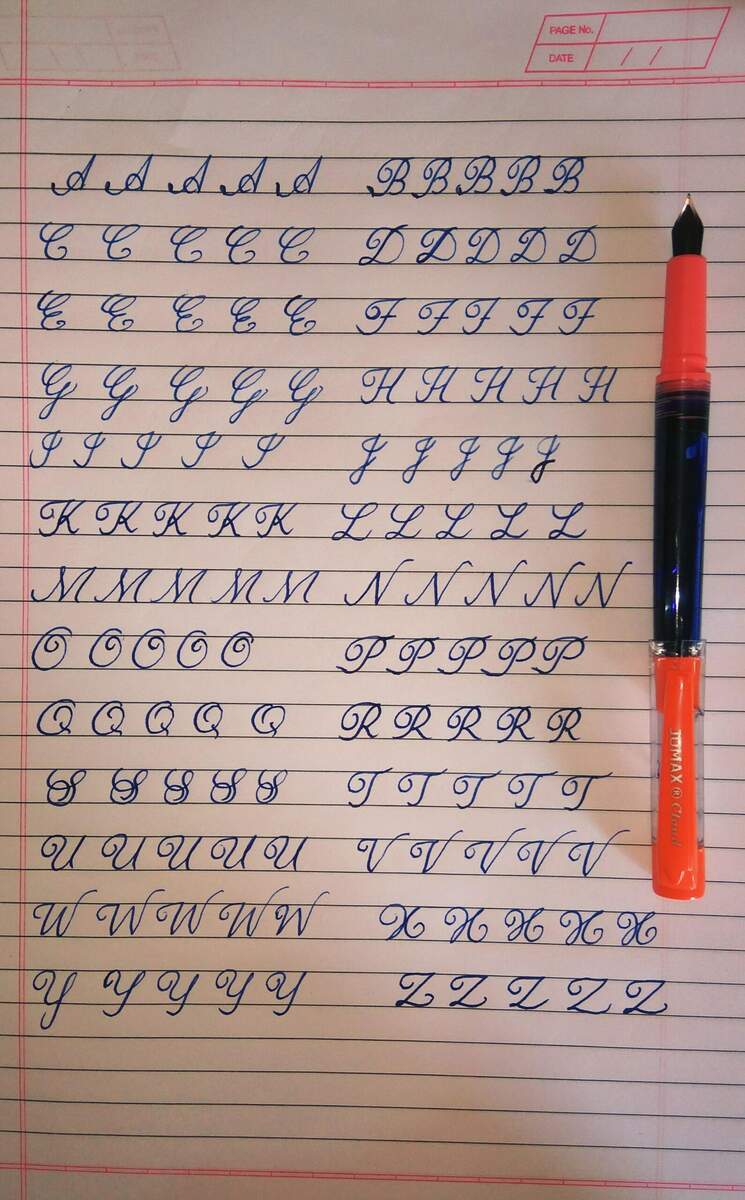 PAGE No.
DATE / /
A A A A A B B B B B
C C C C C D D D D D
E E E E E F F F F F
G G G G G H H H H H
I I I I I J J J J J
K K K K K L L L L L
M M M M M N N N N N
O O O O O P P P P P
Q Q Q Q Q R R R R R
S S S S S T T T T T
U U U U U V V V V V
W W W W W X X X X X
Y Y Y Y Y Z Z Z Z Z
JUMAX ® Cloud